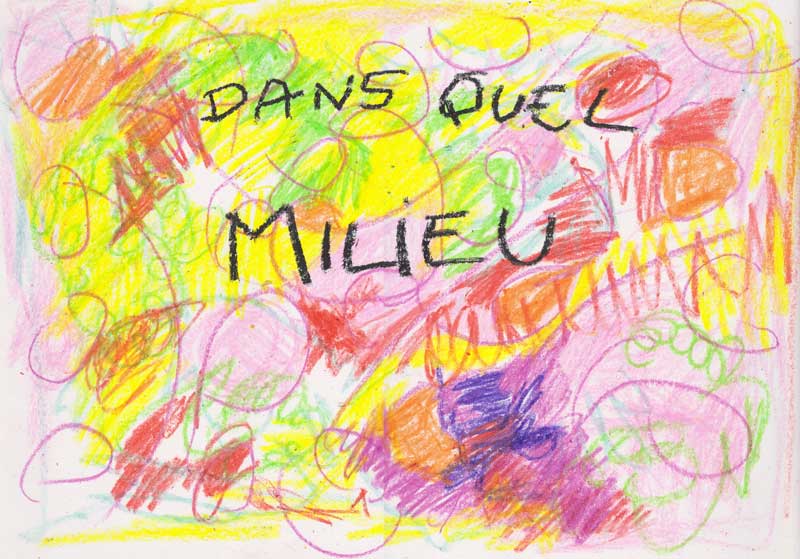 DANS QUEL
MILIEU